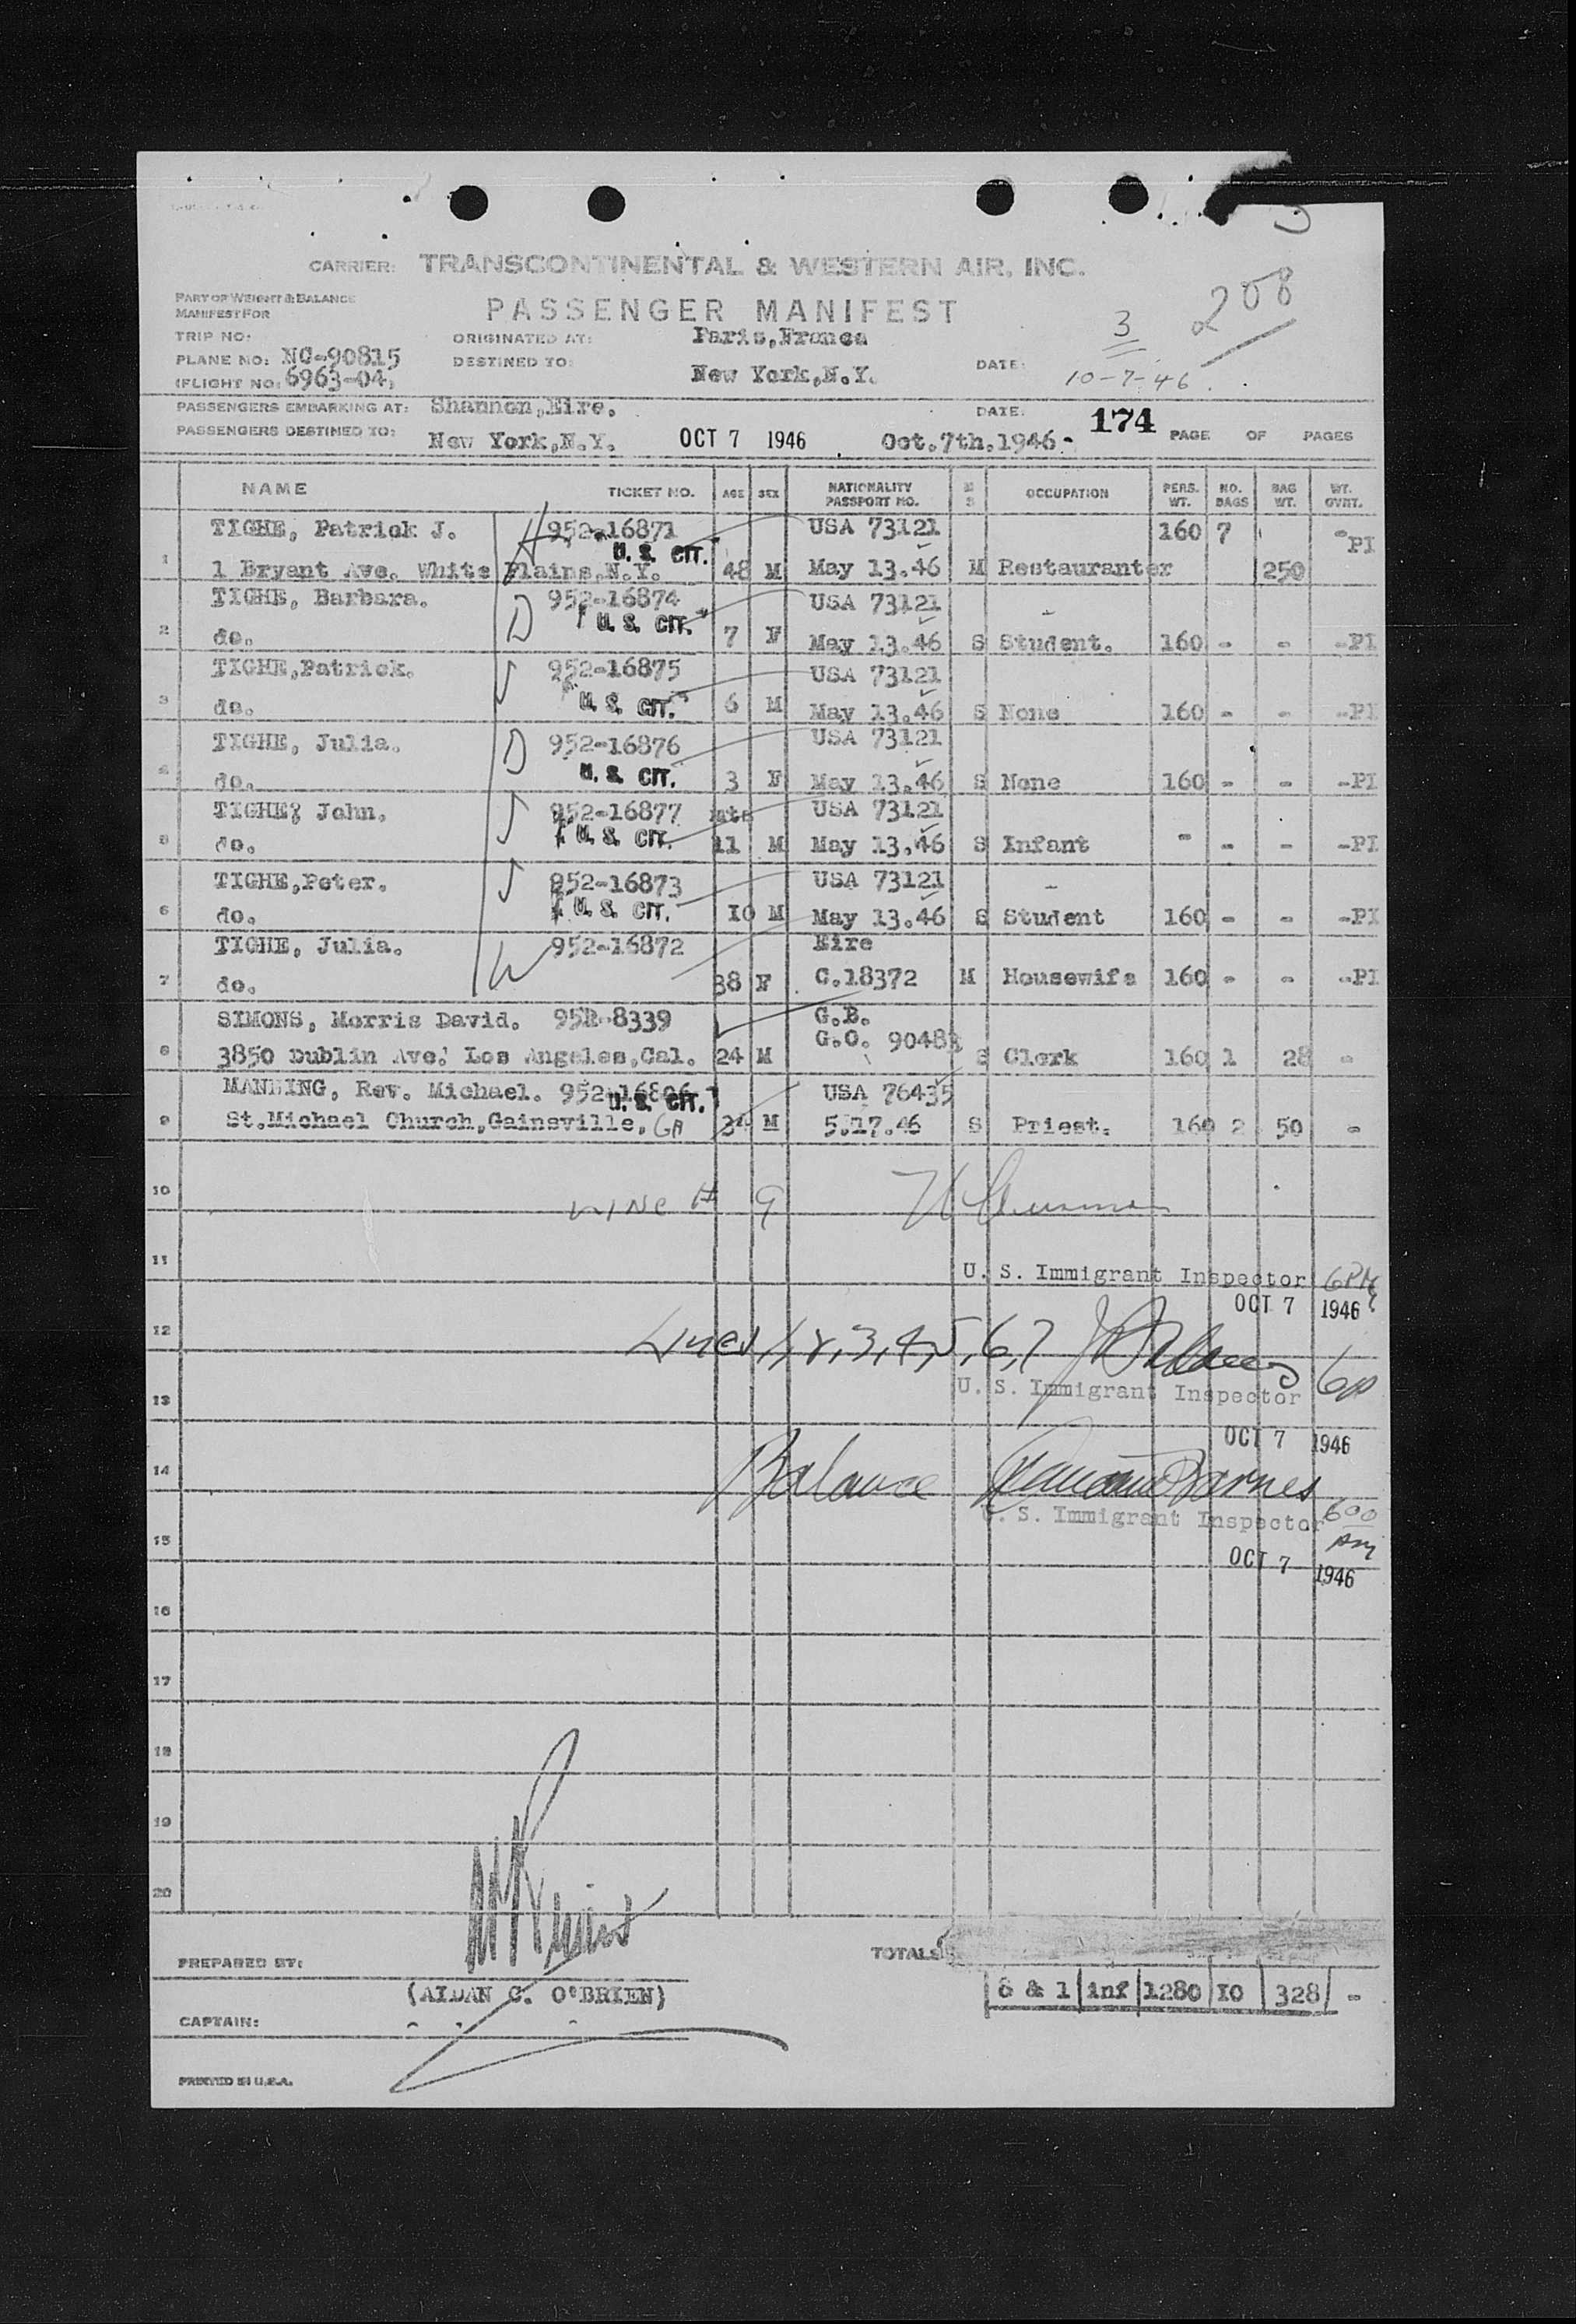 CARRIER: TRANSCONTINENTAL & WESTERN AIR, INC.
PART OF WEIGHT & BALANCE
MANIFEST FOR
PASSENGER MANIFEST
208
3
TRIP NO:
ORIGINATED AT: Paris,France
PLANE NO: NC-90815
DESTINED TO: New York,N.Y.
DATE: 10-7-46.
(FLIGHT NO: 6963-04)
PASSENGERS EMBARKING AT: Shannon,Eire.
DATE: 174
PASSENGERS DESTINED TO: New York,N.Y. OCT 7 1946 Oct.7th.1946- PAGE OF PAGES
NAME TICKET NO. AGE SEX NATIONALITY PASSPORT NO. M S OCCUPATION PERS. WT. NO. BAGS BAG WT. WT. OVRT.
TIGHE, Patrick J. H 952-16871 USA 73121 160 7 -PI
U. S. CIT.
1 1 Bryant Ave. White Plains,N.Y. 48 M May 13.46 M Restauranter 250
TIGHE, Barbara. D 952-16874 USA 73121 -
U. S. CIT.
2 do. 7 F May 13.46 S Student. 160 - - -PI
TIGHE,Patrick. S 952-16875 USA 73121
U. S. CIT.
3 do. 6 M May 13.46 S None 160 - - -PI
TIGHE, Julia. D 952-16876 USA 73121
U. S. CIT.
4 do. 3 F May 13.46 S None 160 - - -PI
TIGHE, John. S 952-16877 mts USA 73121
U. S. CIT.
5 do. 11 M May 13.46 S Infant - - - -PI
TIGHE,Peter. S 952-16873 USA 73121 -
U. S. CIT.
6 do. 10 M May 13.46 S Student 160 - - -PI
TIGHE, Julia. W 952-16872 Eire
7 do. 38 F C.18372 M Housewife 160 - - -PI
SIMONS, Morris David. 952-8339 G.B.
G.O. 90483
8 3850 Dublin Ave. Los Angeles,Cal. 24 M S Clerk 160 1 28 -
MANNING, Rev. Michael. 952-16806 USA 76435
U. S. CIT.
9 St.Michael Church,Gainsville, GA 34 M 5.17.46 S Priest. 160 2 50 -
10 LINE # 9
11
U. S. Immigrant Inspector 6PM
OCT 7 1946
12 Lines 1,2,3,4,5,6,7
U. S. Immigrant Inspector 6P
13
OCT 7 1946
14 Balance Barnes
U. S. Immigrant Inspector 600
15
OCT 7 1946
16
17
18
19
20
PREPARED BY:
TOTALS
(AIDAN C. O'BRIEN)
8 & 1 inf 1280 10 328 -
CAPTAIN:
PRINTED IN U.S.A.